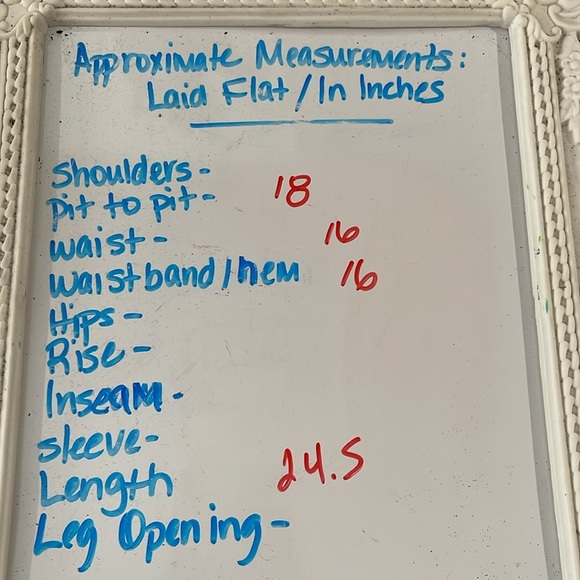 Approximate Measurements:
Laid Flat/In Inches
Shoulders-
pit to pit- 18
waist- 16
waistband/hem 16
Hips-
Rise-
Inseam-
sleeve-
Length 24.5
Leg Opening-